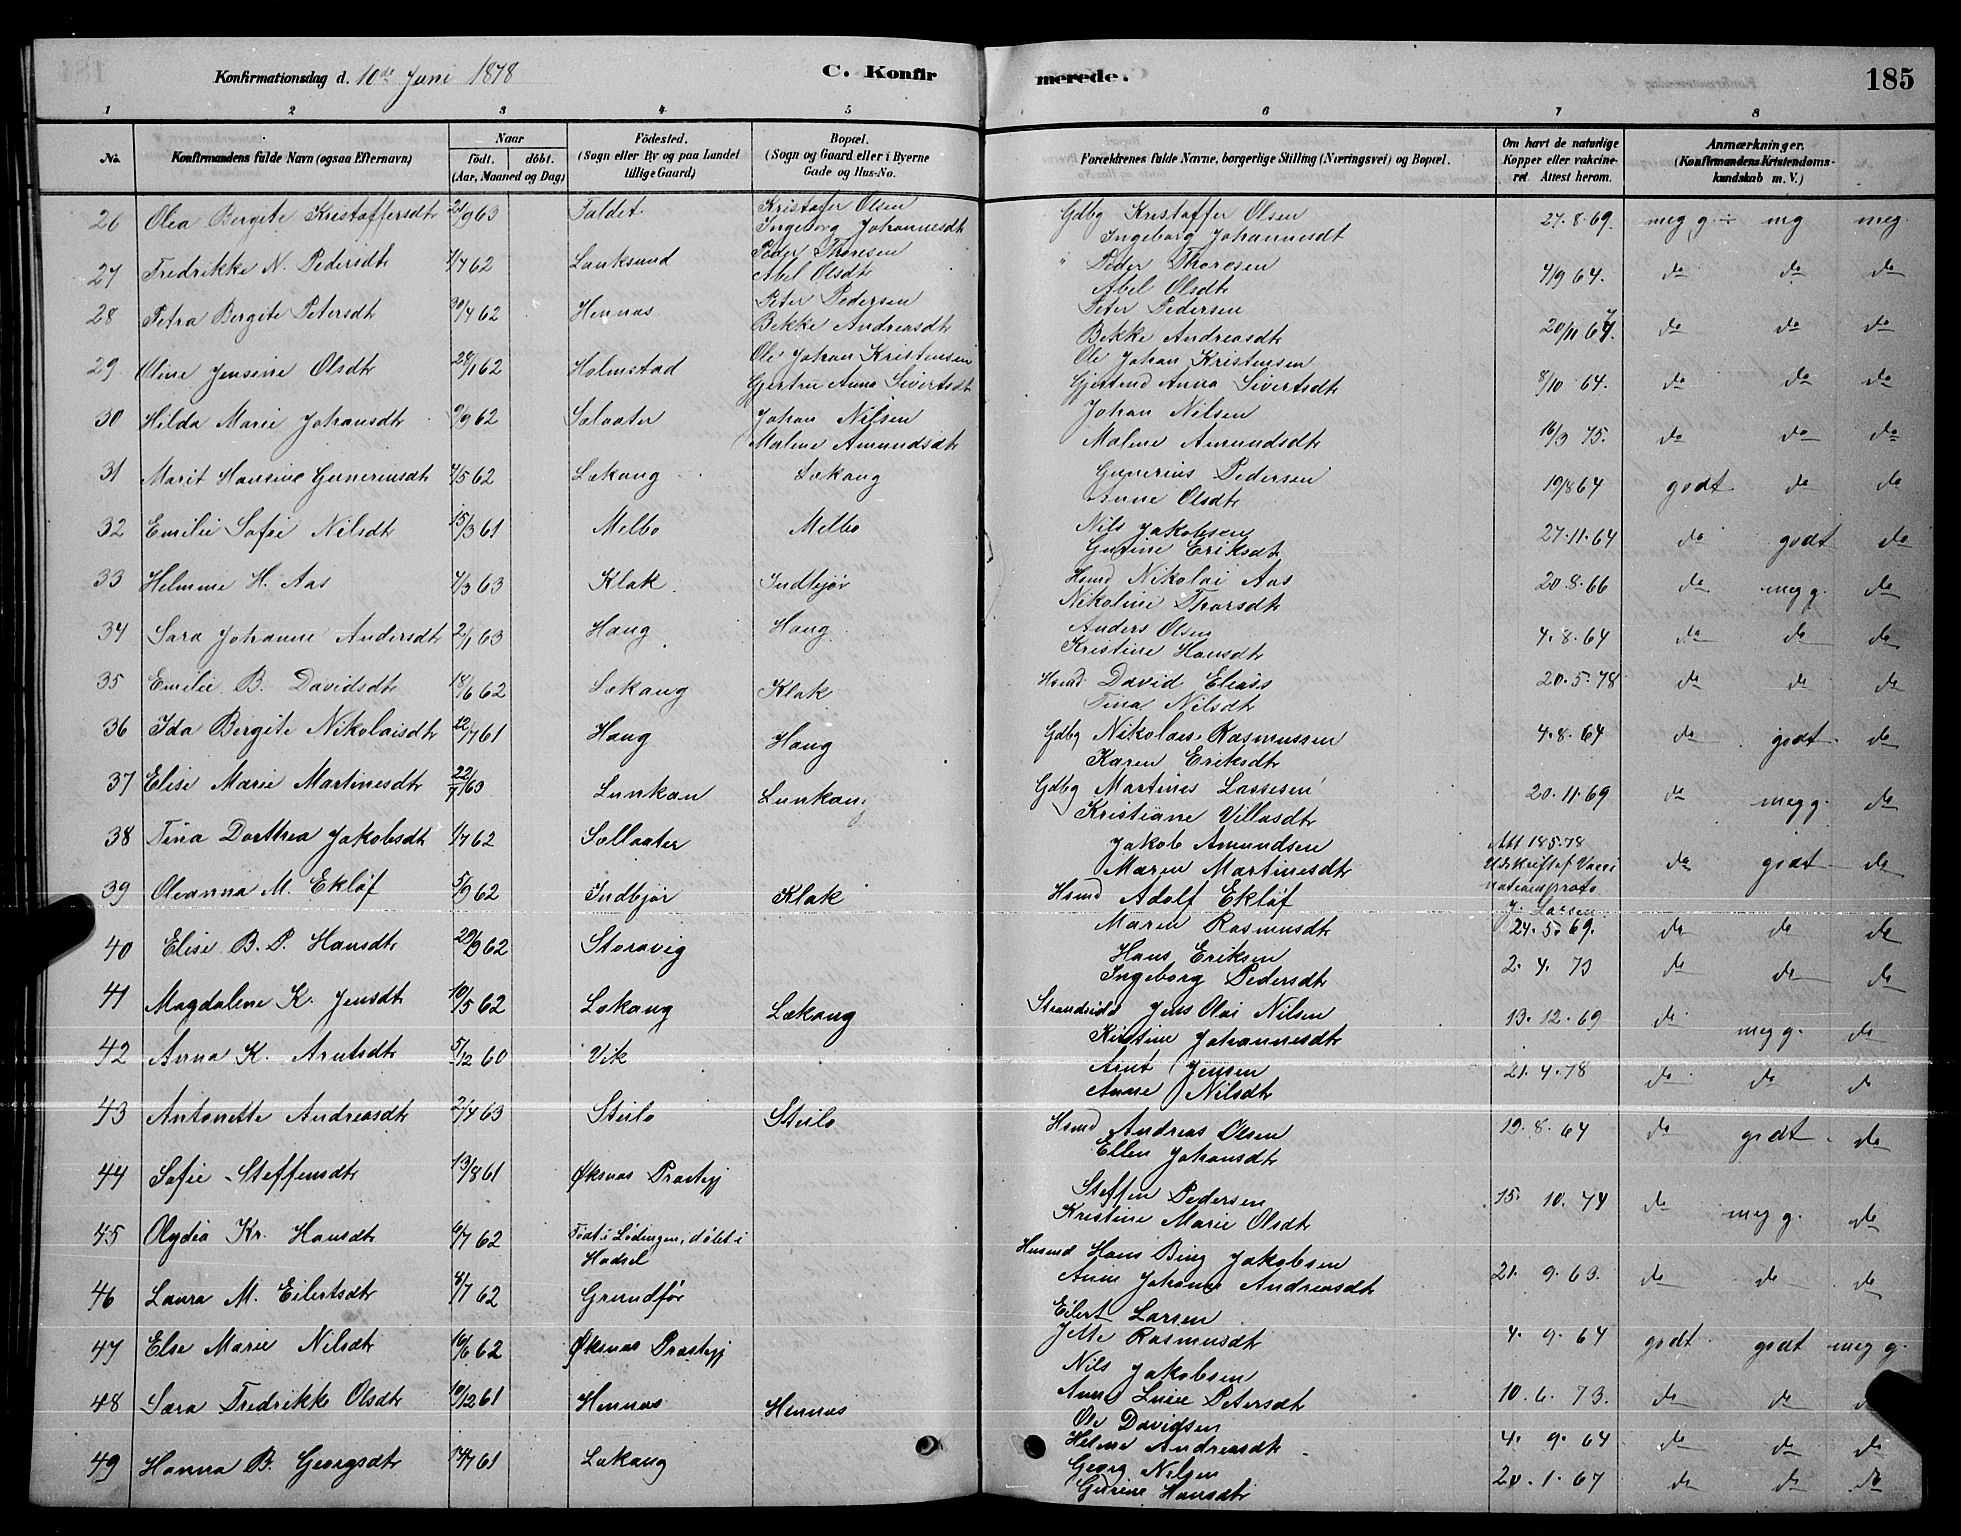 Konfirmationsdag d. 10de Juni 1878
C. Konfir
merede.
185
1 2 3 4 5 6 7 8
No.
Konfirmandens fulde Navn (ogsaa Efternavn)
Naar
födt. döbt.
(Aar, Maaned og Dag)
Födested.
(Sogn eller By og paa Landet
tillige Gaard)
Bopæl.
(Sogn og Gaard eller i Byerne
Gade og Hus-No.
Forældrenes fulde Navne, borgerlige Stilling (Næringsvei) og Bopæl.
Om havt de naturlige
Kopper eller vakcine-
ret Attest herom.
Anmærkninger.
(Konfirmandens Kristendoms-
kundskab m. V.)
26 Olea Bergite Kristoffersdtr 21/9 63 Faldet Kristofer Olsen Gdbg Kristoffer Olsen 27.8.69. meg g. mg meg.
Ingeborg Johannesdt Ingeborg Johannesdt
27 Fredrikke N. Pedersdt 1/7 62 Lanksund Peder Thoresen " Peder Thoresen 4/9 64. do do do
Abel Olsdt Abel Olsdt
28 Petra Bergite Petersdt 30/4 62 Hennas Peter Pedersen Peter Pedersen 20/11 67. do do do
Bekke Andreasdt Bekke Andreasdt
29 Oline Jensine Olsdtr 28/1 62 Holmstad Ole Johan Kristensen Ole Johan Kristensen 8/10 64. do do do
Gjertru Anna Sivertsdt Gjertrud Anna Sivertsdt
30 Hilda Marie Johansdtr 9/9 62 Salaater Johan Nilsen Johan Nilsen 16/3 75. do do do
Malene Amundsdtr Malene Amundsdtr
31 Marit Hansine Guneriusdt 4/5 62 Lekang Lekang Gunerius Pedersen 19/8 64 godt do do
Anne Olsdtr
32 Emilie Sofie Nilsdtr 15/3 61 Melbo Melbo Nils Jakobsen 27.11.64 do godt do
Gurine Eriksdt
33 Helmine H. Aas 4/3 63 Klak. Indbjør Hsmd Nikolai Aas 20.8.66 do meg g. do
Nikoline Thorsdtr
34 Sara Johanne Andersdtr 2/1 63 Haug Haug Anders Olsen 4.8.64 do do do
Kristine Hansdtr
35 Emilie B. Davidsdtr 18/6 62 Lekang Klak Hsmd David Eliass 20.5.78 do do do
Tina Nilsdtr
36 Ida Bergite Nikolaisdtr 22/7 61 Haug Haug Gdbg Nikolai Rasmussen 4.8.64 do godt do
Karen Eriksdtr
37 Elise Marie Martinesdtr 22/7 63 Lunkan Lunkan Gdbg Martines Lassesen 20.11.69 do meg g. do
Kristiane Villasdtr
38 Tina Dorthea Jakobsdt 1/7 62 Sellaater Jakob Amundsen Att 18 5.78 do godt do
Maren Martinesdtr Udskrift af Vacci
nationsproto
39 Oleanna M. Ekløf 5/9 62 Indbjør Klak Hsmd Adolf Ekløf J. Larsen
Maren Rasmusdtr 24.5.69. do do do
40 Elise B. P. Hansdtr 29/9 62 Storavig Hans Eriksen 2.4.73 do do do
Ingeborg Pedersdtr
41 Magdalene K. Jensdt 10/5 62 Lekang Lekang Jens Olai Nilsen 13.12.69 do meg g. do
Kirstine Johannesdtr
42 Anna K. Arntsdtr 5/12 60 Vik Arnt Jensen 21.4.78 do do do
Anne Nilsdtr
43 Antonette Andreasdtr 2/4 63 Steilo Steilo Hsmd Andreas Olsen 19.8.64 do godt do
Ellen Johansdtr
44 Sofie Steffensdtr 13/8 61 Øksnas Prastegj Steffen Pedersen 15. 10. 74 do meg g. do
Kristine Marie Olsdtr
45 Olydia Kr. Hansdtr 6/7 62 Født i Lødingen, døbt i Husmd Hans Bing Jakobsen 21. 9. 63. do do do
Hadsel Anne Johanne Andreasdtr
46 Laura M. Eilertsdtr 8/7 62 Grundfør Eilert Larsen 4. 9. 64 godt godt meg g.
Jette Rasmusdtr
47 Else Marie Nilsdtr 16/6 62 Øksnas Prastegj Nils Jakobsen 10. 6. 73. do do
Anne Petersdtr
48 Sara Fredrikke Olsdtr 10/12 61 Hennas Hennas Ole Davidsen 4. 9. 64 do do do
Helene Andreasdtr
49 Hanna B. Georgsdtr 14/7 61 Lekang Georg Nilsen 20. 1. 67 do do do
Gurine Hansdtr